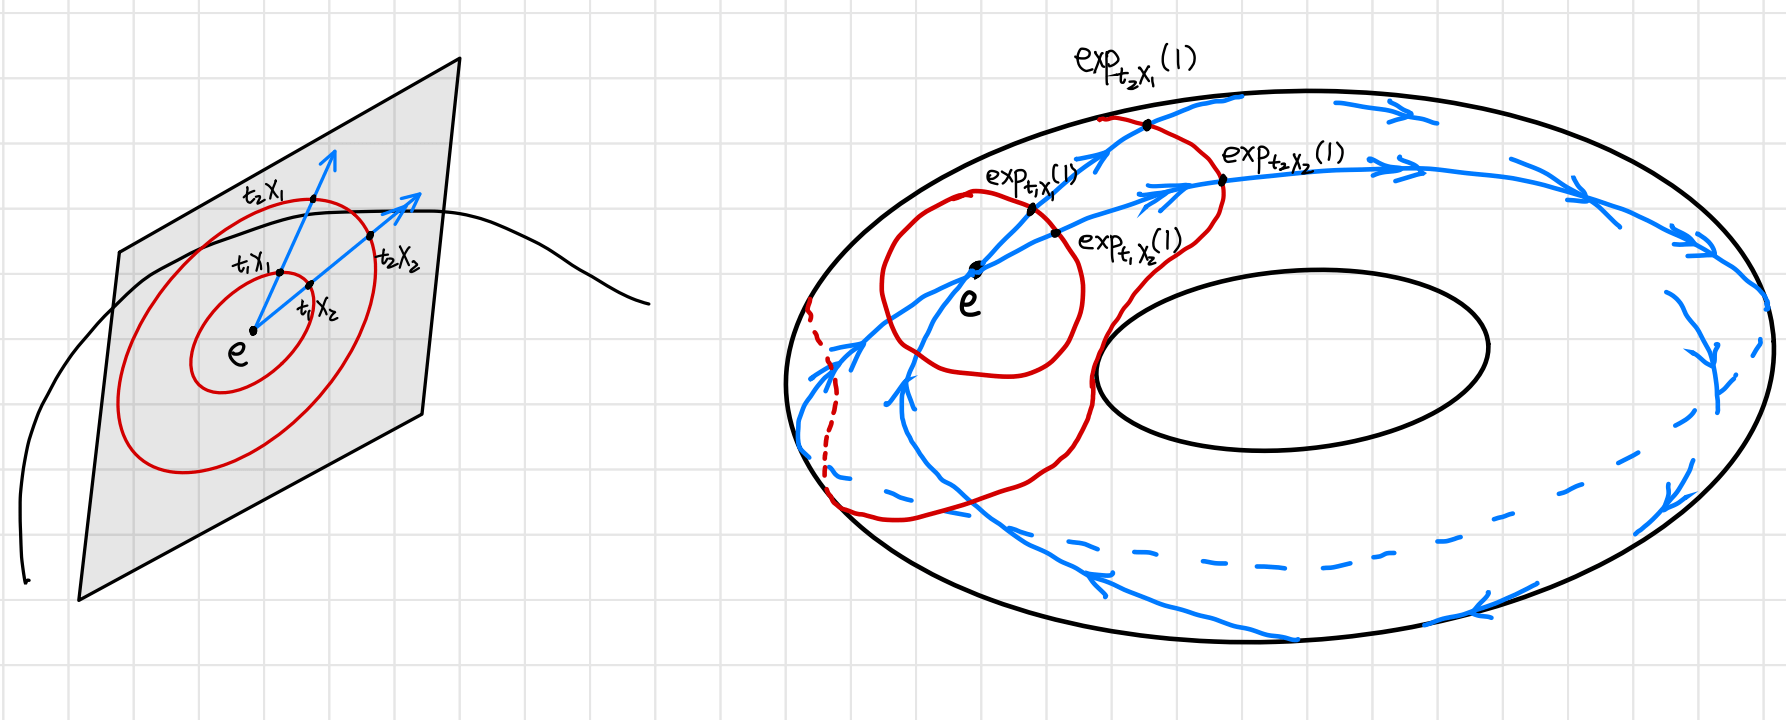 t₂X₁
t₁X₁
t₂X₂
t₁X₂
e
exp_{t₂X₁}(1)
exp_{t₁X₁}(1)
exp_{t₂X₂}(1)
exp_{t₁X₂}(1)
e